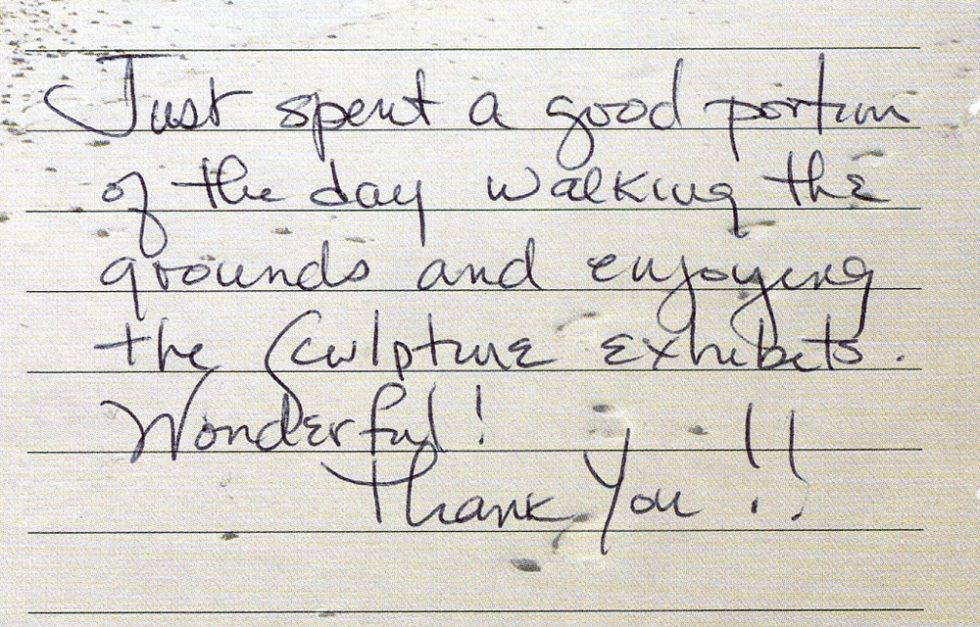 Just spent a good portion
of the day walking the
grounds and enjoying
the Sculpture exhibits.
Wonderful!
Thank You!!